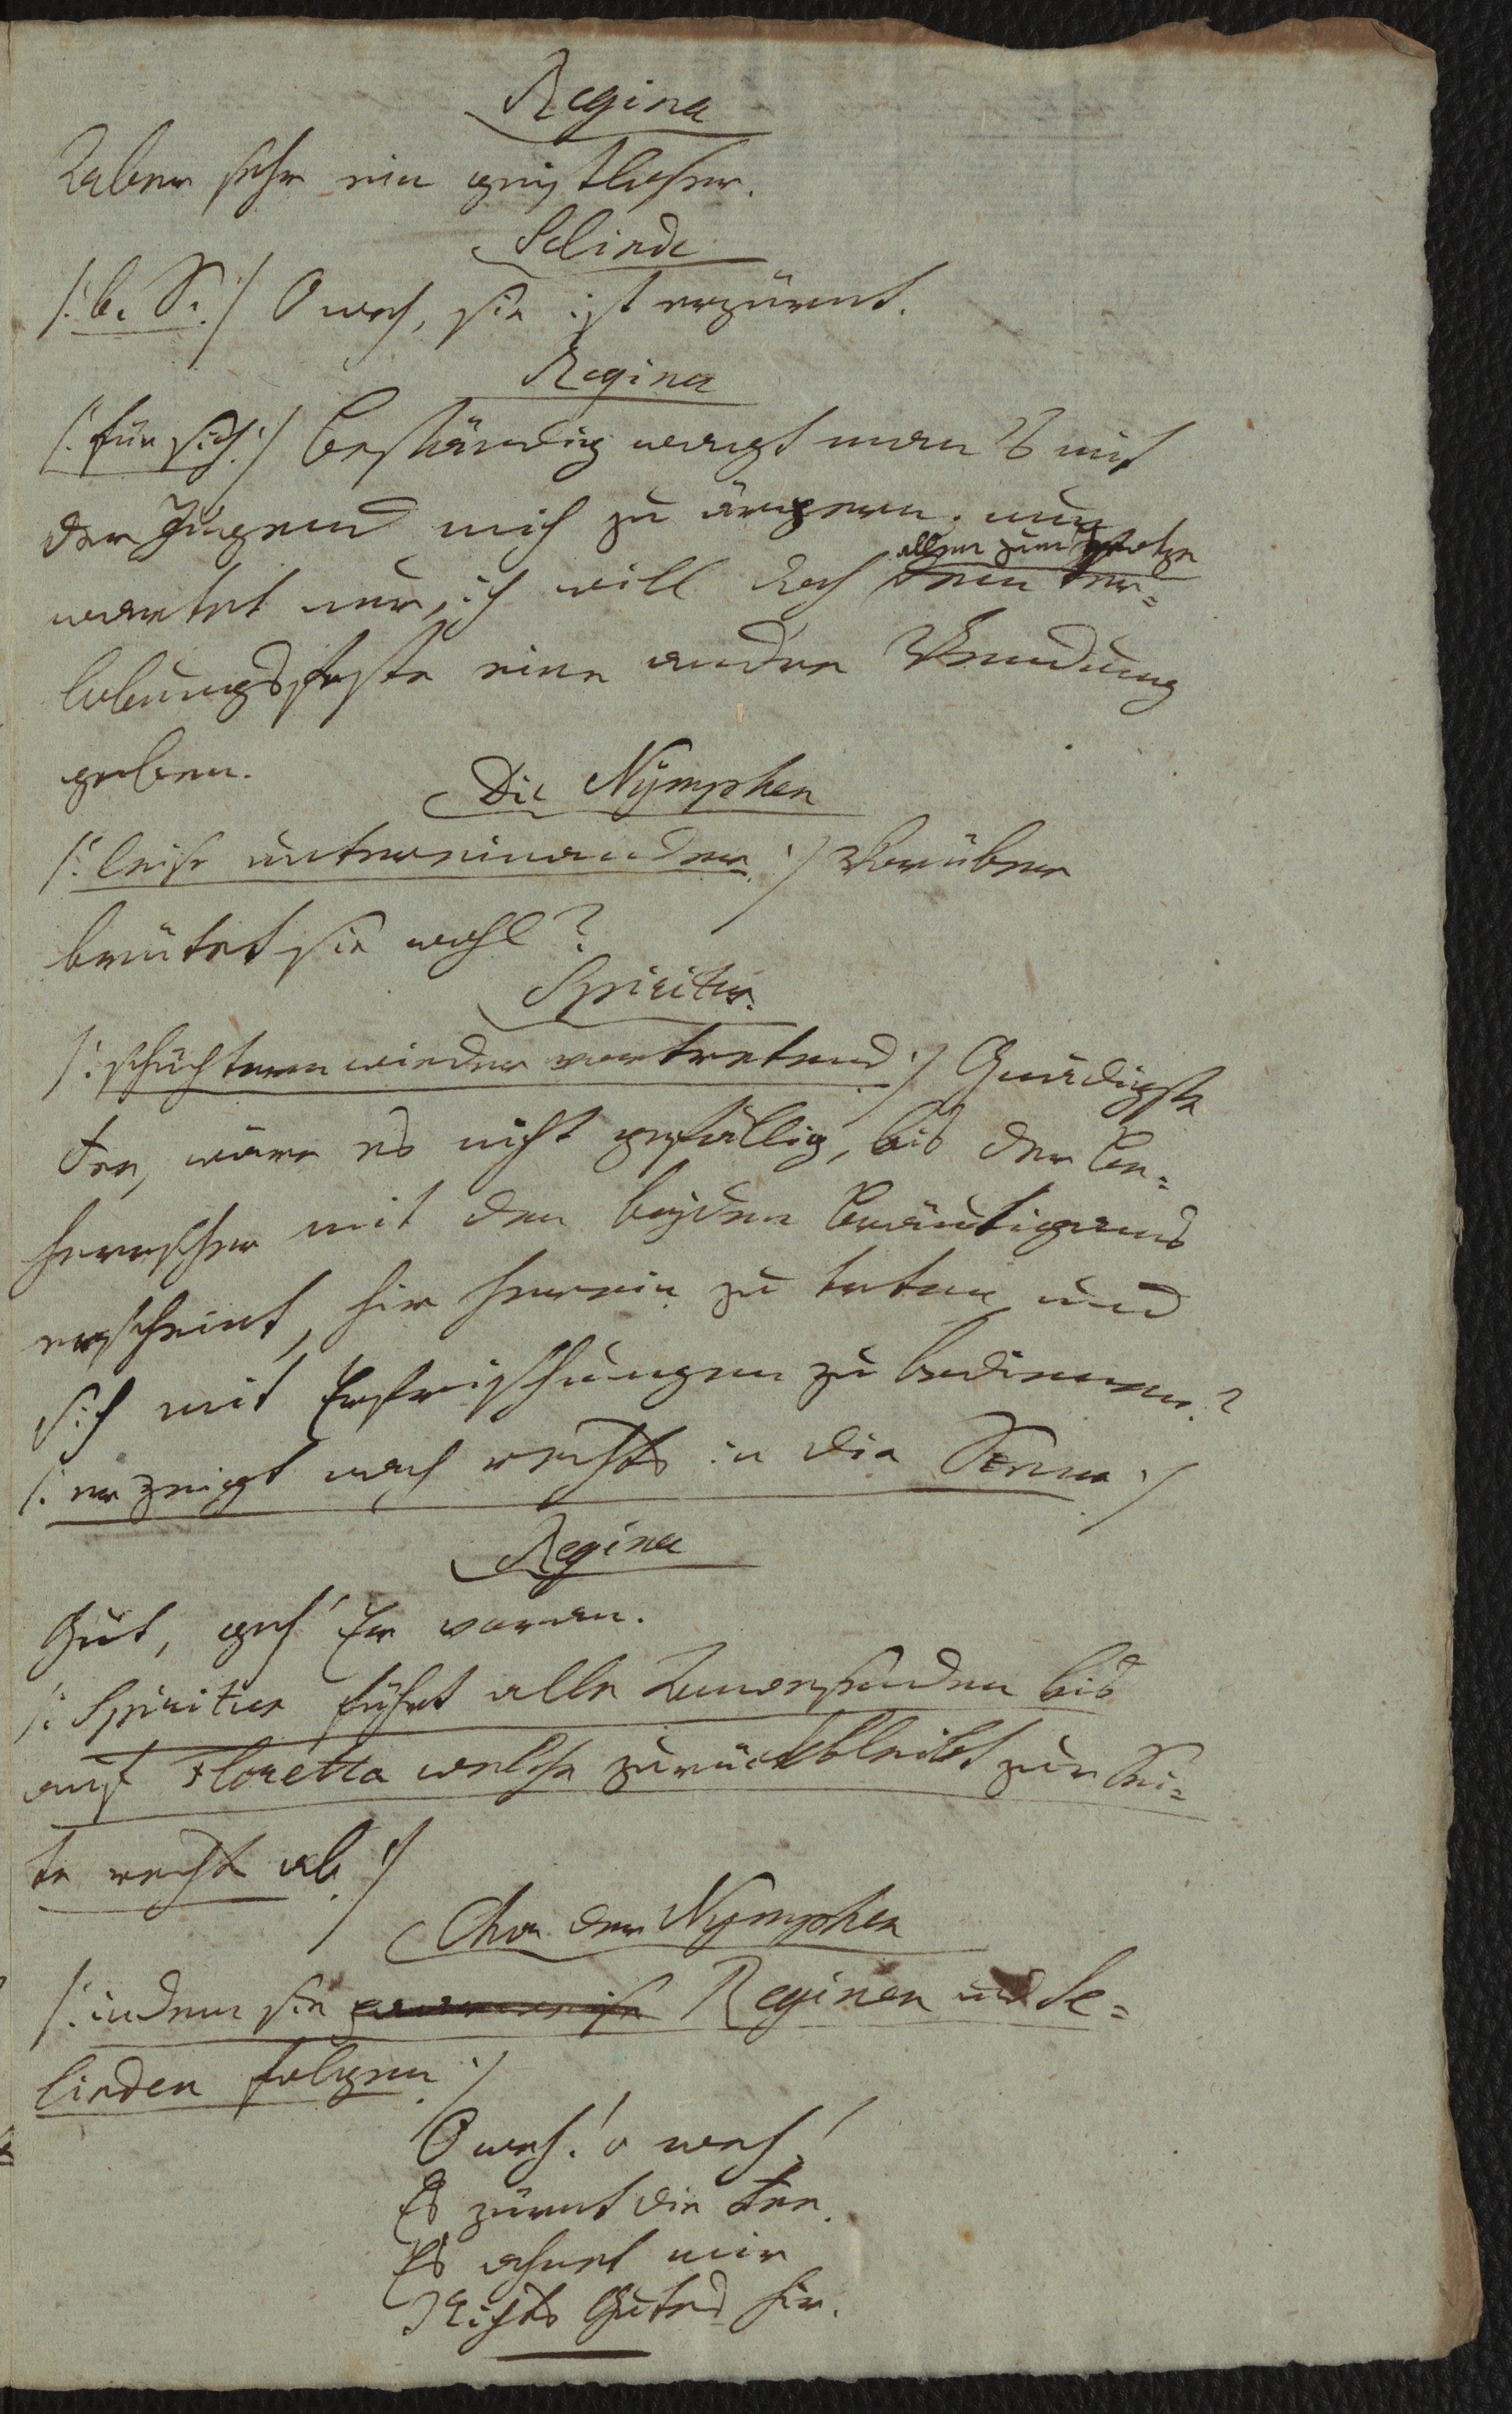 Regina
Aber sehr ein geistlicher.
Selinde
/: b. S. :/ O weh, sie ist erzürnt.
Regina
/: für sich :/ Beständig wagt man's mit
der Jugend mich zu ärgern. nun
allen zum Trotze
wartet nur, ich will doch dem Ver=
lobungsfeste eine andre Wendung
geben.
Die Nÿmphen
/: leise untereinander :/ Worüber
brütet sie wohl?
Spiritus.
/: schüchtern wieder vortretend :/ Gnädigste
Fee, wäre es nicht gefällig, bis der Be=
herrscher mit den beÿden Bräutigams
erscheint, hier herein zu treten und
sich mit Erfrischungen zu bedienen?
/: er zeigt nach rechts in die Scene :/
Regina
Gut, geh' Er voran.
/: Spiritus führt alle Anwesenden bis
auf Floretta welche zurückbleibt zur Sei=
te rechts ab :/
Chor der Nymphen
/: indem sie Reginen und Se=
linden folgen :/
O weh! o weh!
Es zürnt die Fee.
Es ahnet mir
Nichts Gutes hier.